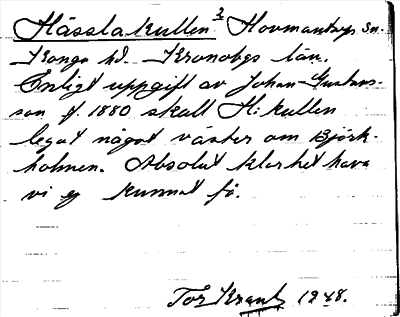 Hässlakullen 2 Hovmantorps sn.
Konga hd. Kronobgs län.
Enligt uppgift av Johan Gustavs-
son f. 1880 skall H:kullen
legat något väster om Björk-
holmen. Absolut klarhet hava
vi ej kunnat få.
Tor Krantz 1948.